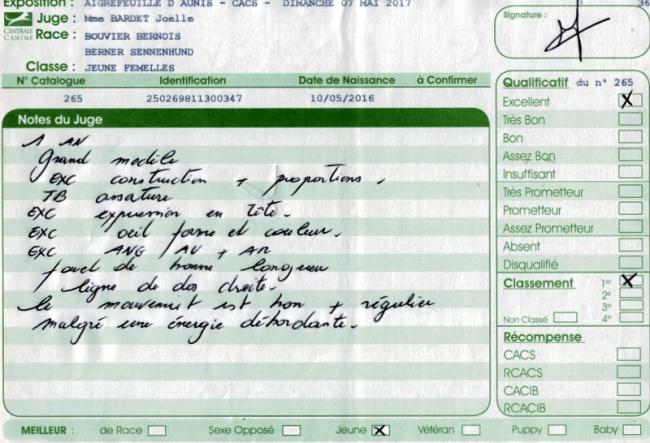 Exposition : AIGREFEUILLE D'AUNIS - CACS - DIMANCHE 07 MAI 2017 36
Juge : Mme BARDET Joelle
CENTRALE CANINE
Race : BOUVIER BERNOIS
BERNER SENNENHUND
Classe : JEUNE FEMELLES
Signature :
N° Catalogue Identification Date de Naissance à Confirmer
265 250269811300347 10/05/2016
Notes du Juge
1 AN
Grand modèle
EXC construction + proportions.
TB ossature
EXC expression en tête.
EXC oeil forme et couleur.
EXC ANG AV + AR
fouet de bonne longueur
ligne de dos droite.
le mouvement est bon + régulier
malgré une énergie débordante.
Qualificatif du n° 265
Excellent X
Très Bon
Bon
Assez Bon
Insuffisant
Très Prometteur
Prometteur
Assez Prometteur
Absent
Disqualifié
Classement 1er X
2e
3e
Non Classé 4e
Récompense
CACS
RCACS
CACIB
RCACIB
MEILLEUR : de Race Sexe Opposé Jeune X Vétéran Puppy Baby